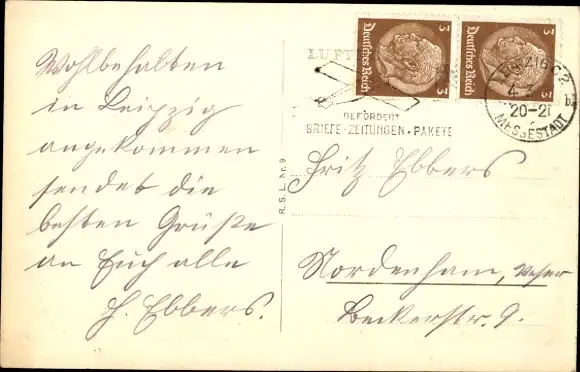 Wohlbehalten
in Leipzig
angekommen
sendet die
besten Grüße
an Euch alle
H. Ebbers.
R.S.L. Nr. 9
3 Deutsches Reich 3
3 Deutsches Reich 3
LUFT
BEFÖRDERT
BRIEFE-ZEITUNGEN-PAKETE
LEIPZIG C 2
20-21
MESSESTADT
Fritz Ebbers
Nordenham, Weser
Beckerstr. 9.